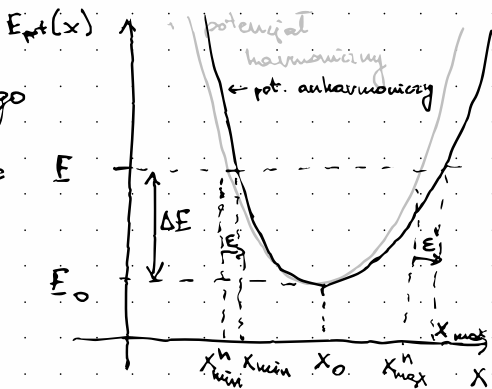 E_pot(x)
potencjał
harmoniczny
← pot. anharmoniczy
zo
E
e
ΔE
ε
ε
E_0
x^h_min x_min x_0 x^h_max x_max x